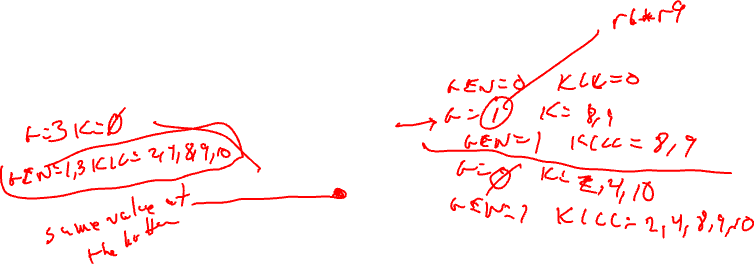 r6*r9
GEN=0 KILL=0
G=1 K=8,9
GEN=1 KILL=8,9
G=0 K=2,4,10
GEN=1 KILL=2,4,8,9,10
G=3 K=0
GEN=1,3 KILL=2,4,8,9,10
same value at
the bottom